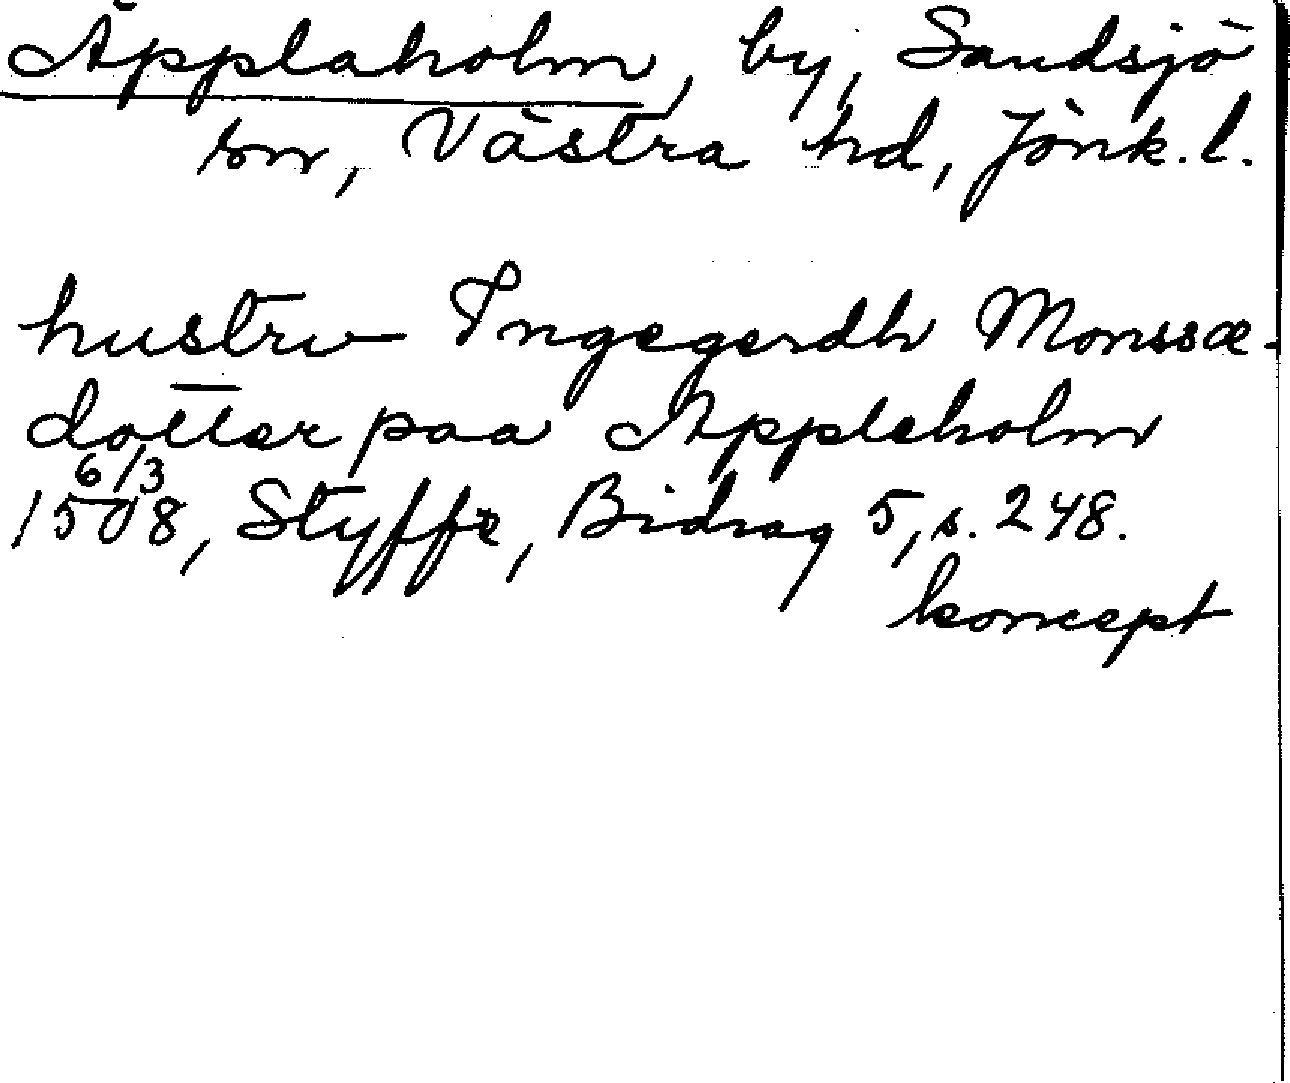 Äpplaholm, by, Sandsjö
sn, Västra hd, Jönk. l.
hustrv Ingegerdh Monssæ-
dotter paa Appleholm
6/3
1508, Styffe, Bidrag 5, s. 248.
koncept